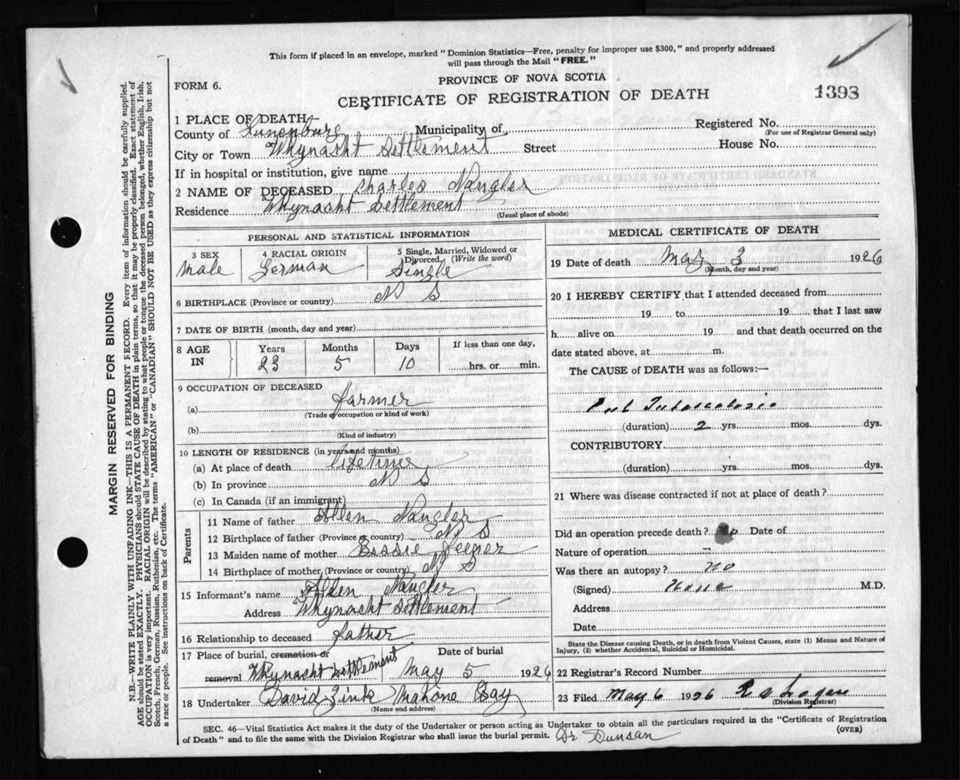 This form if placed in an envelope, marked "Dominion Statistics—Free, penalty for improper use $300," and properly addressed
will pass through the Mail "FREE."
FORM 6.
PROVINCE OF NOVA SCOTIA
CERTIFICATE OF REGISTRATION OF DEATH
1393
1 PLACE OF DEATH
County of Lunenburg Municipality of
Registered No.
(For use of Registrar General only)
City or Town Whynacht Settlement Street House No.
If in hospital or institution, give name
2 NAME OF DECEASED Charles Nangler
Residence Whynacht Settlement
(Usual place of abode)
PERSONAL AND STATISTICAL INFORMATION
3 SEX Male
4 RACIAL ORIGIN German
5 Single, Married, Widowed or Divorced (Write the word) Single
6 BIRTHPLACE (Province or country) N S
7 DATE OF BIRTH (month, day and year)
8 AGE IN Years 23 Months 5 Days 10 If less than one day, hrs. or min.
9 OCCUPATION OF DECEASED
(a) Farmer
(Trade or occupation or kind of work)
(b)
(Kind of industry)
10 LENGTH OF RESIDENCE (in years and months)
(a) At place of death lifetime
(b) In province N S
(c) In Canada (if an immigrant)
Parents
11 Name of father Allen Nangler
12 Birthplace of father (Province or country) N S
13 Maiden name of mother Bessie Veener
14 Birthplace of mother (Province or country) N S
15 Informant's name Allen Nangler
Address Whynacht Settlement
16 Relationship to deceased Father
17 Place of burial, cremation or removal Whynacht Settlement Date of burial May 5 1926
18 Undertaker David Zink Mahone Bay
(Name and address)
MEDICAL CERTIFICATE OF DEATH
19 Date of death May 3 1926
(Month, day and year)
20 I HEREBY CERTIFY that I attended deceased from
19 to 19 that I last saw
h alive on 19 and that death occurred on the
date stated above, at m.
The CAUSE of DEATH was as follows:—
Pul Tuberculosis
(duration) 2 yrs. mos. dys.
CONTRIBUTORY
(duration) yrs. mos. dys.
21 Where was disease contracted if not at place of death?
Did an operation precede death? No Date of
Nature of operation –
Was there an autopsy? No
(Signed) None M.D.
Address
Date
State the Disease causing Death, or in death from Violent Causes, state (1) Means and Nature of
Injury, (2) whether Accidental, Suicidal or Homicidal.
22 Registrar's Record Number
23 Filed May 6 1926 Logan
(Division Registrar)
SEC. 46—Vital Statistics Act makes it the duty of the Undertaker or person acting as Undertaker to obtain all the particulars required in the "Certificate of Registration
of Death" and to file the same with the Division Registrar who shall issue the burial permit. Dr Dunsan
(OVER)
MARGIN RESERVED FOR BINDING
N.B.—WRITE PLAINLY WITH UNFADING INK—THIS IS A PERMANENT RECORD. Every item of information should be carefully supplied.
AGE should be stated EXACTLY. PHYSICIANS should STATE CAUSE OF DEATH in plain terms, so that it may be properly classified. Exact statement of
OCCUPATION is very important. RACIAL ORIGIN will be described by stating to what people or tongue the deceased person belonged, whether English, Irish,
Scotch, French, German, Russian, Ruthenian, etc. The terms "AMERICAN" or "CANADIAN" SHOULD NOT BE USED as they express citizenship but not
a race or people. See instructions on back of Certificate.